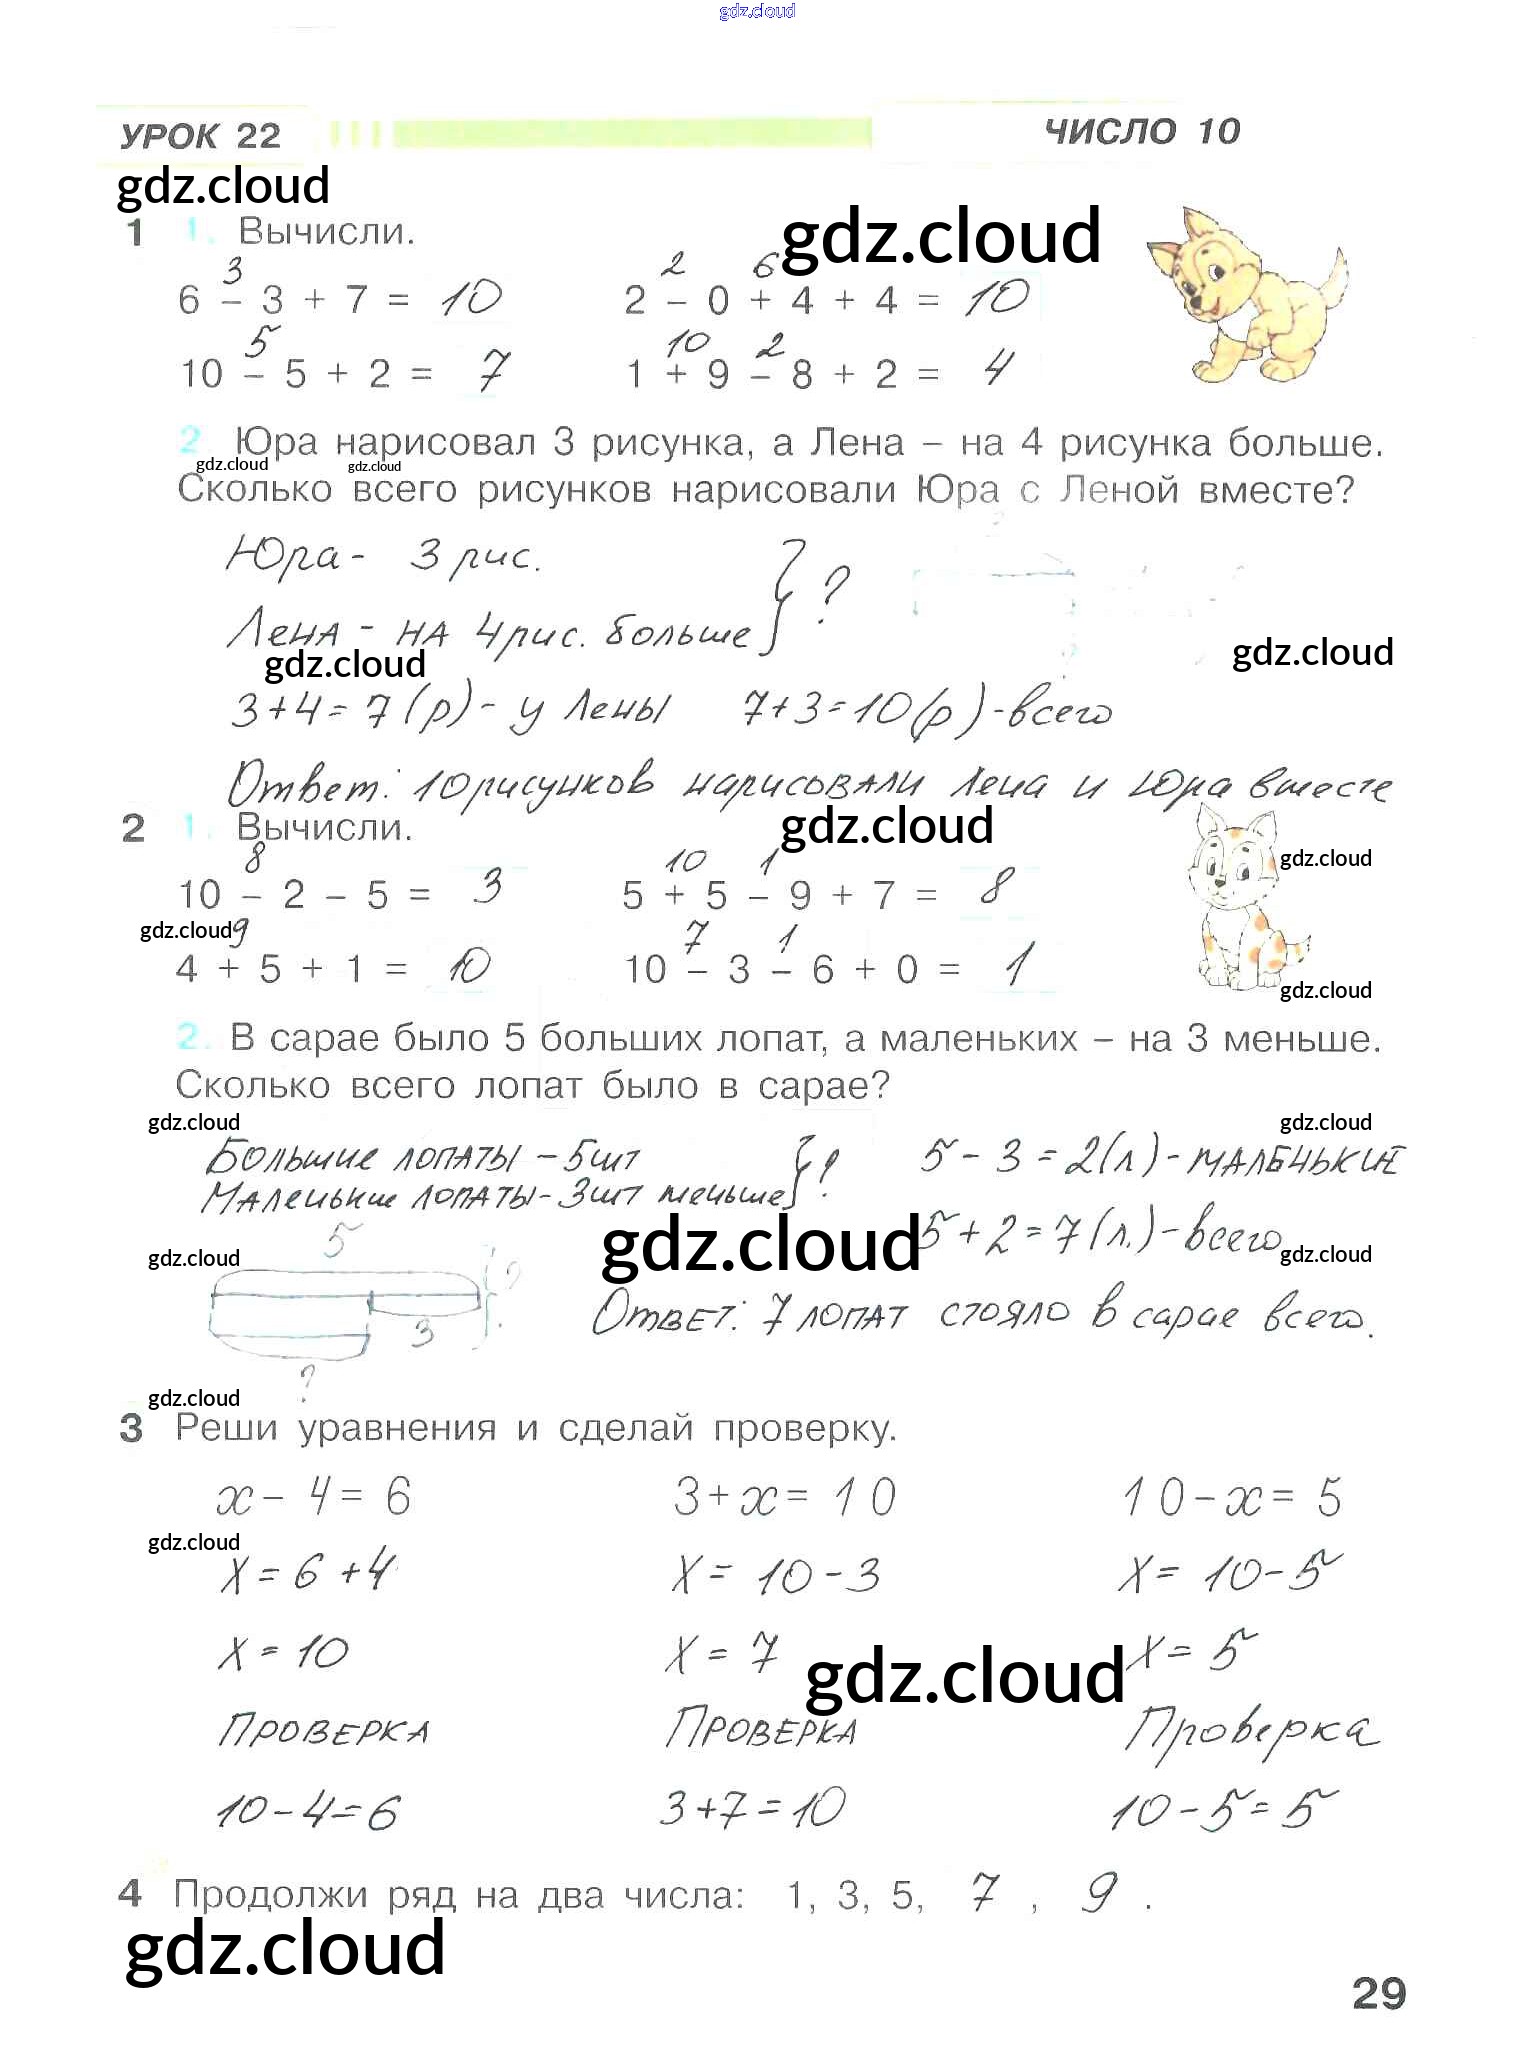 gdz.cloud
УРОК 22
ЧИСЛО 10
gdz.cloud
gdz.cloud
1 1. Вычисли.
3 2 6
6 – 3 + 7 = 10 2 – 0 + 4 + 4 = 10
5 10 2
10 – 5 + 2 = 7 1 + 9 – 8 + 2 = 4
2 Юра нарисовал 3 рисунка, а Лена – на 4 рисунка больше.
gdz.cloud gdz.cloud
Сколько всего рисунков нарисовали Юра с Леной вместе?
Юра - 3 рис.
} ?
Лена - на 4 рис. больше
gdz.cloud gdz.cloud
3+4=7(р)-у Лены 7+3=10(р)-всего
Ответ: 10 рисунков нарисовали Лена и Юра вместе
2 1. Вычисли.
gdz.cloud
gdz.cloud
8 10 1
10 – 2 – 5 = 3 5 + 5 – 9 + 7 = 8
gdz.cloud
9 7 1
4 + 5 + 1 = 10 10 – 3 – 6 + 0 = 1
gdz.cloud
2. В сарае было 5 больших лопат, а маленьких – на 3 меньше.
Сколько всего лопат было в сарае?
gdz.cloud gdz.cloud
Большие лопаты - 5шт } ? 5 - 3 = 2(л)-маленькие
Маленькие лопаты - 3шт меньше
gdz.cloud
5+2=7(л.)-всего
gdz.cloud
gdz.cloud
5
?
3
?
Ответ: 7 лопат стояло в сарае всего.
gdz.cloud
3 Реши уравнения и сделай проверку.
x - 4 = 6 3 + x = 10 10 - x = 5
gdz.cloud
x = 6 + 4 x = 10 - 3 x = 10 - 5
x = 10 x = 7 x = 5
gdz.cloud
Проверка Проверка Проверка
10-4=6 3+7=10 10-5=5
4 Продолжи ряд на два числа: 1, 3, 5, 7 , 9 .
gdz.cloud
29